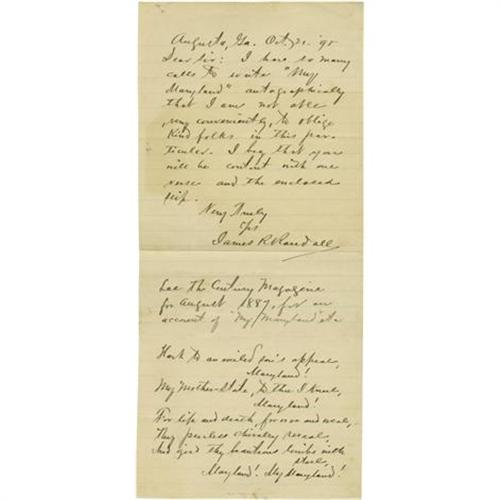 Augusta, Ga. Oct. 21. '90
Dear Sir: I have so many
calls to write "My
Maryland" autographically
that I am not able
very conveniently, to oblige
kind folks in this par-
ticular. I beg that you
will be content with one
verse and the enclosed
slip.
Very truly
yrs
James R. Randall
See the Century Magazine
for August 1887, for an
account of "My Maryland" etc
Hark to an exiled son's appeal,
Maryland!
My Mother-State, to thee I kneel,
Maryland!
For life and death, for woe and weal,
Thy peerless chivalry reveal,
And gird thy beauteous limbs with
steel,
Maryland! My Maryland!